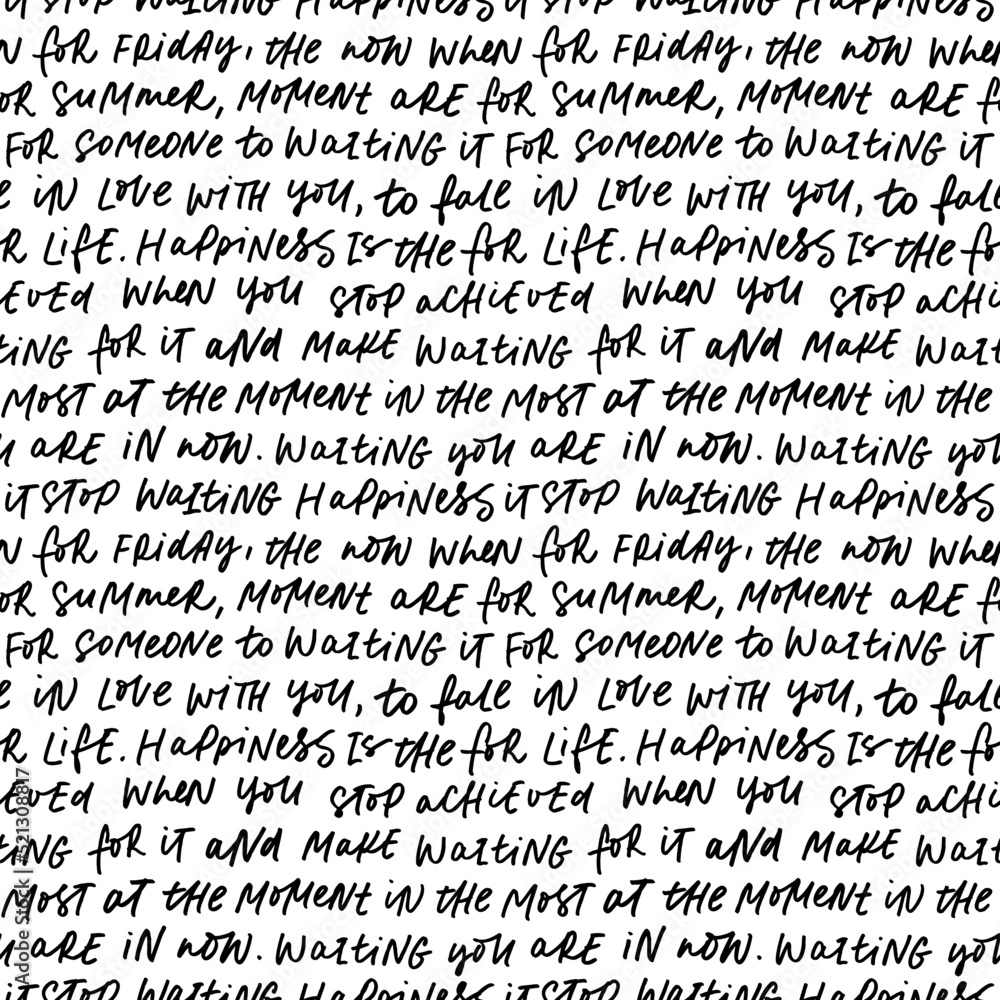 it STOP WAITING HAPPINESS it STOP WAITING HAPPINESS
N for FRIDAY, the now when for FRIDAY, the now when
OR SUMMER, MOMENT ARE for SUMMER, MOMENT ARE f
FOR SOMEONE to WAITING iT FOR SOMEONE to WAITING iT
e in Love WiTH you, to fall in Love WiTH you, to fall
R LifE. HAppiNESS Is the foR LifE. HAppiNESS Is the fo
EVEd when you STOP ACHiEVEd when you STOP ACHi
TiNG foR iT and MAKE WAITiNG foR iT and MAKE WAIT
MOST AT the MOMENT in the MOST AT the MOMENT in the
u ARE iN now. WAITING you ARE iN now. WAITING you
iT STOP WAITING HAppiNESS iT STOP WAITING HAppiNESS
N for FRIDAY, the now when for FRIDAY, the now when
OR SUMMER, MOMENT ARE for SUMMER, MOMENT ARE f
FOR SOMEONE to WAITING iT FOR SOMEONE to WAITING iT
e in Love WiTH you, to fall in Love WiTH you, to fall
R LifE. HAppiNESS Is the foR LifE. HAppiNESS Is the fo
EVEd when you STOP ACHiEVEd when you STOP ACHi
TiNG foR iT and MAKE WAITiNG foR iT and MAKE WAIT
MOST AT the MOMENT in the MOST AT the MOMENT in the
u ARE iN now. WAITING you ARE iN now. WAITING you
iT STOP WAITING HAppiNESS iT STOP WAITING HAppiNESS
Adobe Stock | #521308817